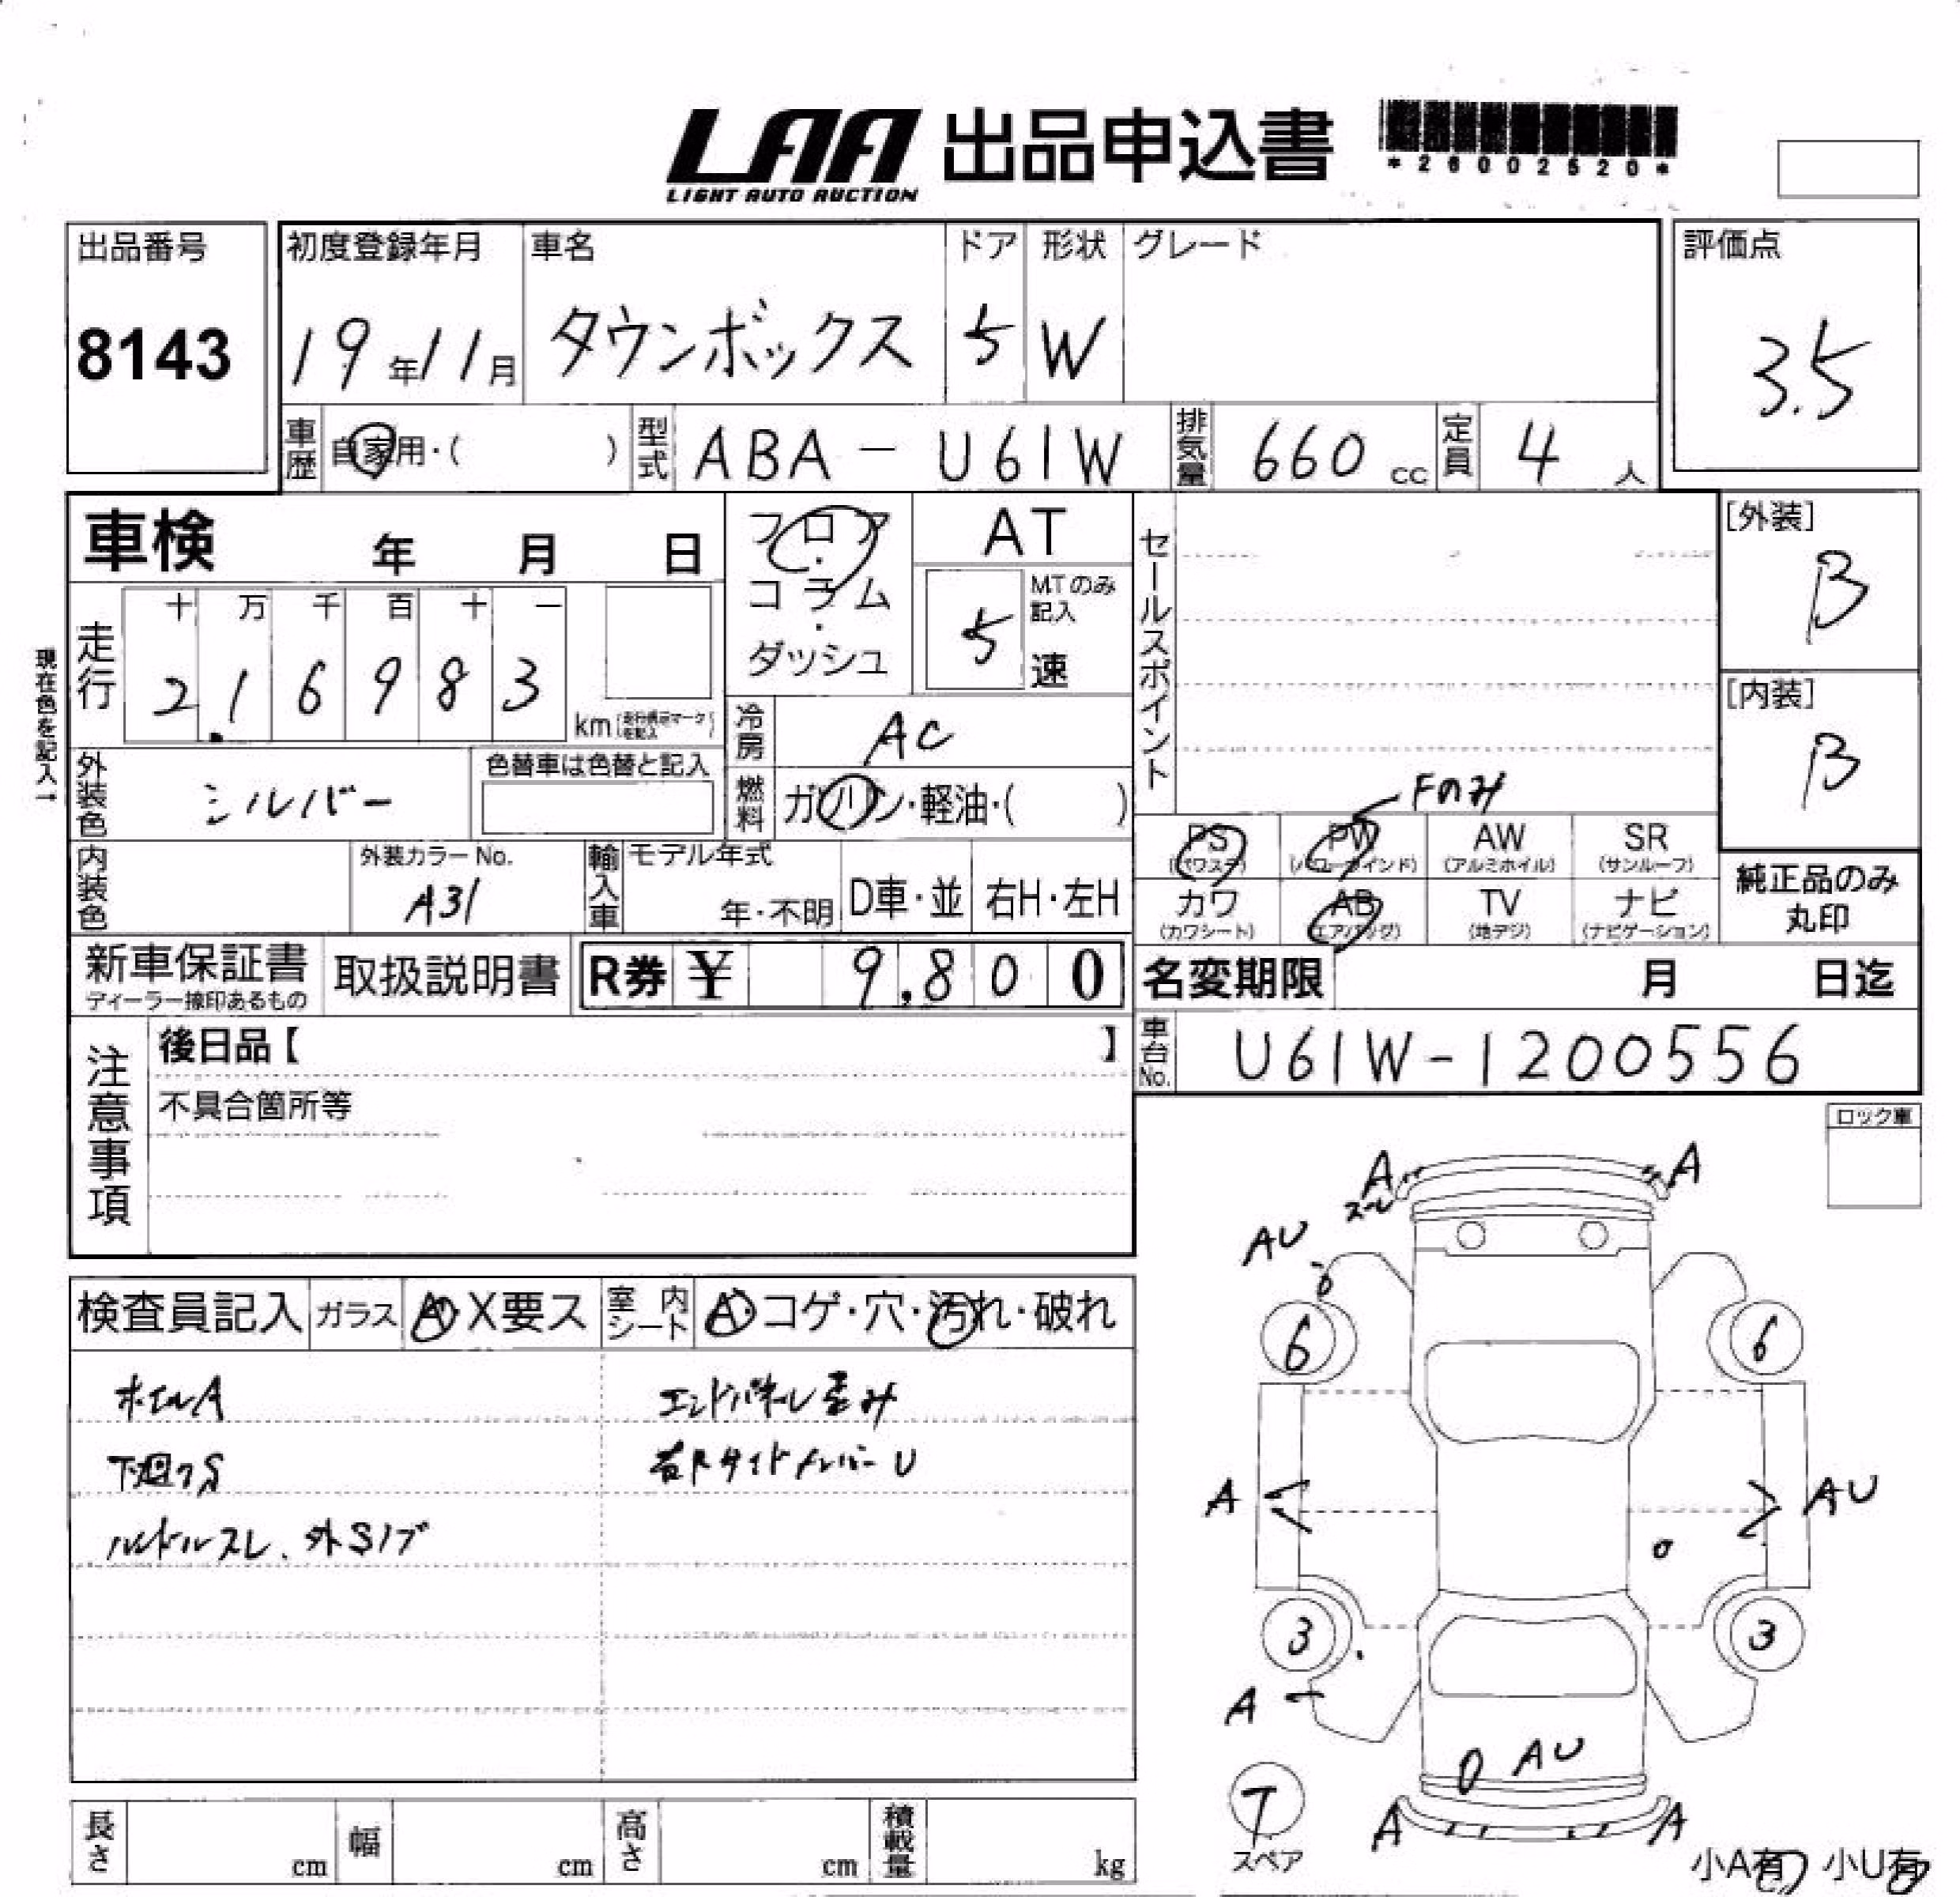 LAA 出品申込書
LIGHT AUTO AUCTION
*26002520*
出品番号
8143
初度登録年月
19年11月
車名
タウンボックス
ドア
5
形状
W
グレード
評価点
3.5
車歴 自家用・( )
型式 ABA - U61W
排気量 660 cc
定員 4 人
車検 年 月 日
フロア・コラム・ダッシュ
AT
5 MTのみ記入 速
セールスポイント
[外装]
B
[内装]
B
現在色を記入→
走行 十 万 千 百 十 一
2.16983 km
冷房 AC
外装色 シルバー
色替車は色替と記入
燃料 ガソリン・軽油・( )
Fのみ
PS (パワステ) PW (パワーウインド) AW (アルミホイル) SR (サンルーフ)
カワ (カワシート) AB (エアバッグ) TV (地デジ) ナビ (ナビゲーション)
純正品のみ丸印
内装色
外装カラーNo.
A31
輸入車 モデル年式 年・不明 D車・並 右H・左H
新車保証書
ディーラー捺印あるもの
取扱説明書
R券 ¥ 9,800
名変期限 月 日迄
車台No. U61W-1200556
注意事項
後日品【 】
不具合箇所等
ロック車
検査員記入 ガラス A・X要ス 室内シート A・コゲ・穴・汚れ・破れ
ホイルA
エンドパネル歪み
下廻りS
右Rサイドメンバー U
ハンドルスレ、外Sノブ
A
スーレ
A
AU
6
6
A
AU
3
3
A
AU
T
スペア
A
A
小A有 小U有
長さ cm 幅 cm 高さ cm 積載量 kg